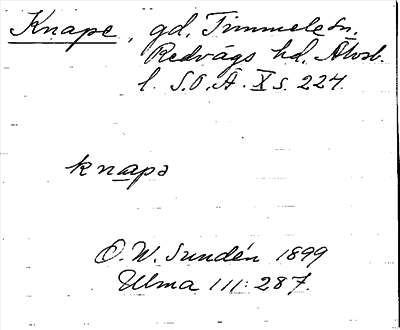 Knape, gd, Timmele sn,
Redvägs hd, Älvsb.
l. S.O.Ä. X s. 224.
knapə
O.W. Sundén 1899
Ulma 111:287.